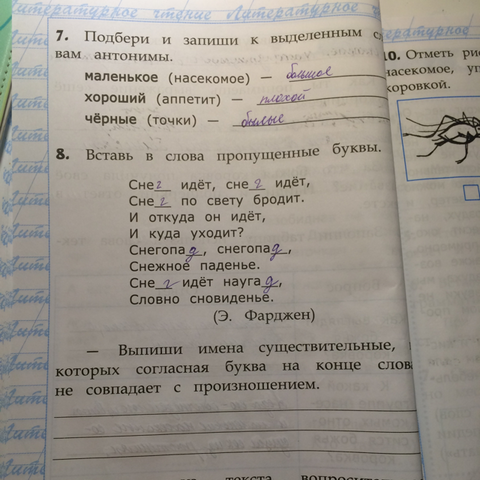 Литературное чтение Литературное
7. Подбери и запиши к выделенным с
вам антонимы.
маленькое (насекомое) — большое
хороший (аппетит) — плохой
чёрные (точки) — былые
8. Вставь в слова пропущенные буквы.
Снег идёт, снег идёт,
Снег по свету бродит.
И откуда он идёт,
И куда уходит?
Снегопад, снегопад,
Снежное паденье.
Снег идёт наугад,
Словно сновиденье.
(Э. Фарджен)
— Выпиши имена существительные,
которых согласная буква на конце слова
не совпадает с произношением.
текста вопросител
10. Отметь рис
насекомое, уп
коровкой.